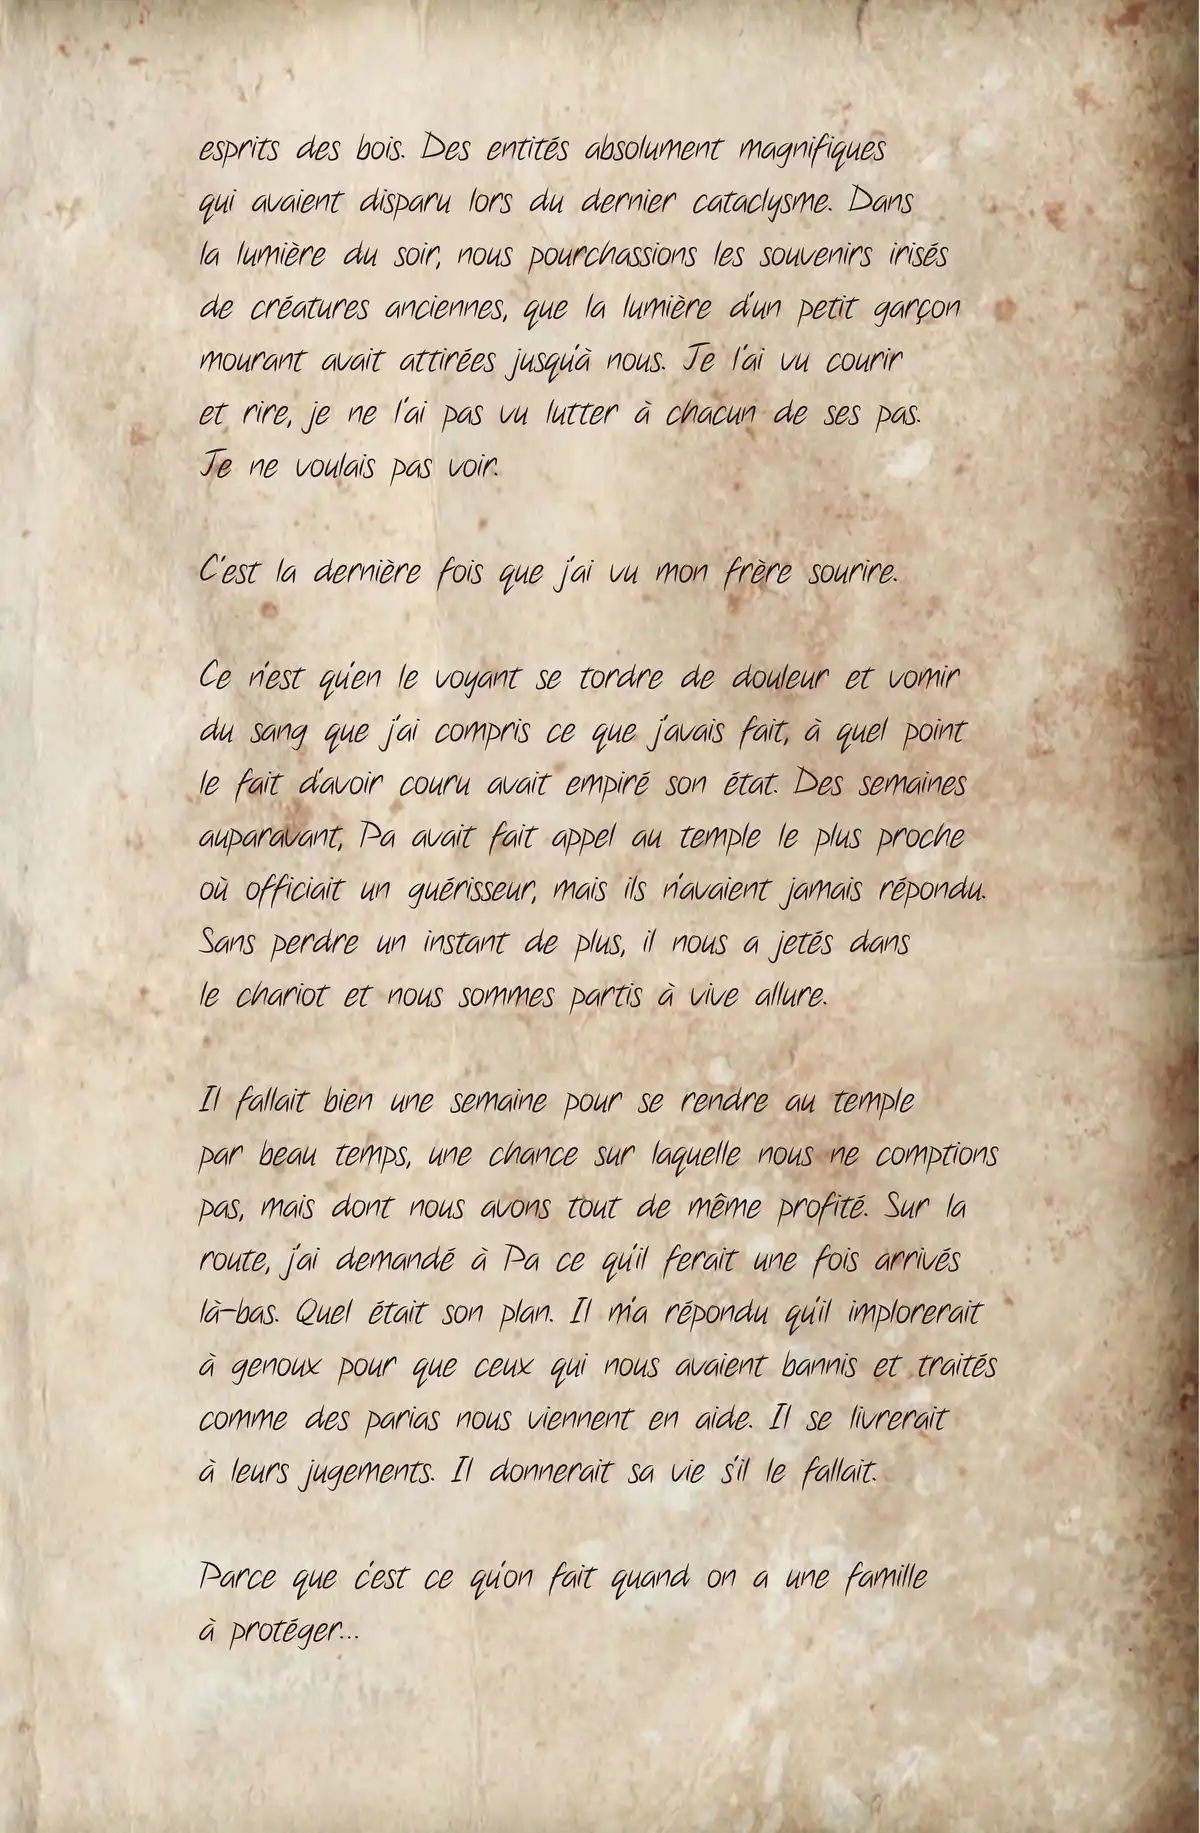 esprits des bois. Des entités absolument magnifiques
qui avaient disparu lors du dernier cataclysme. Dans
la lumière du soir, nous pourchassions les souvenirs irisés
de créatures anciennes, que la lumière d'un petit garçon
mourant avait attirées jusqu'à nous. Je l'ai vu courir
et rire, je ne l'ai pas vu lutter à chacun de ses pas.
Je ne voulais pas voir.
C'est la dernière fois que j'ai vu mon frère sourire.
Ce n'est qu'en le voyant se tordre de douleur et vomir
du sang que j'ai compris ce que j'avais fait, à quel point
le fait d'avoir couru avait empiré son état. Des semaines
auparavant, Pa avait fait appel au temple le plus proche
où officiait un guérisseur, mais ils n'avaient jamais répondu.
Sans perdre un instant de plus, il nous a jetés dans
le chariot et nous sommes partis à vive allure.
Il fallait bien une semaine pour se rendre au temple
par beau temps, une chance sur laquelle nous ne comptions
pas, mais dont nous avons tout de même profité. Sur la
route, j'ai demandé à Pa ce qu'il ferait une fois arrivés
là-bas. Quel était son plan. Il m'a répondu qu'il implorerait
à genoux pour que ceux qui nous avaient bannis et traités
comme des parias nous viennent en aide. Il se livrerait
à leurs jugements. Il donnerait sa vie s'il le fallait.
Parce que c'est ce qu'on fait quand on a une famille
à protéger...